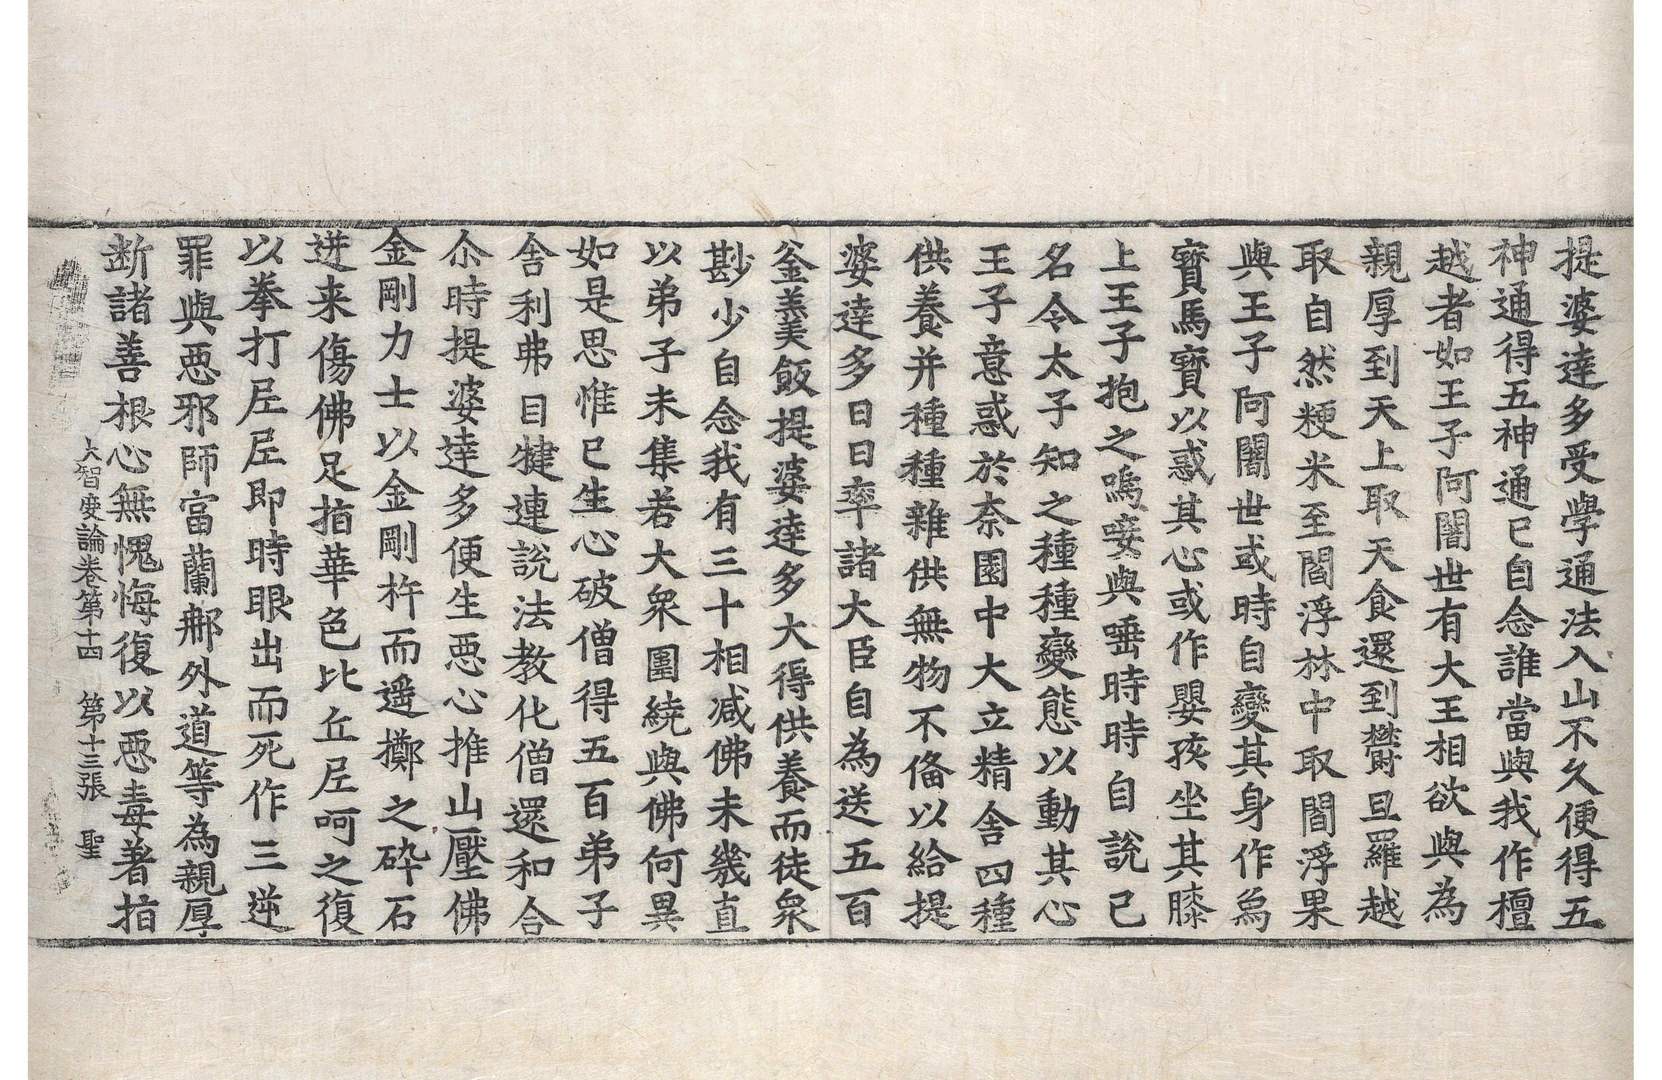 提婆達多受學通法入山不久便得五
神通得五神通已自念誰當與我作檀
越者如王子阿闍世有大王相欲與為
親厚到天上取天食還到欝旦羅越
取自然粳米至閻浮林中取閻浮果
與王子阿闍世或時自變其身作為
寶馬寶以惑其心或作嬰孩坐其膝
上王子抱之嗚𠲿與唾時時自說己
名令太子知之種種變態以動其心
王子意惑於柰園中大立精舍四種
供養并種種雜供無物不俻以給提
婆達多日日率諸大臣自為送五百
釜羹飯提婆達多大得供養而徒衆
尠少自念我有三十相减佛未幾直
以弟子未集若大衆圍繞與佛何異
如是思惟已生心破僧得五百弟子
舍利弗目犍連說法教化僧還和合
尒時提婆達多便生惡心推山壓佛
金剛力士以金剛杵而遥擲之碎石
迸来傷佛足指華色比丘尼呵之復
以拳打尼尼即時眼出而死作三逆
罪與惡邪師富蘭𨚗外道等為親厚
断諸善根心無愧悔復以惡毒著指
大智度論卷第十四 第十三張 聖